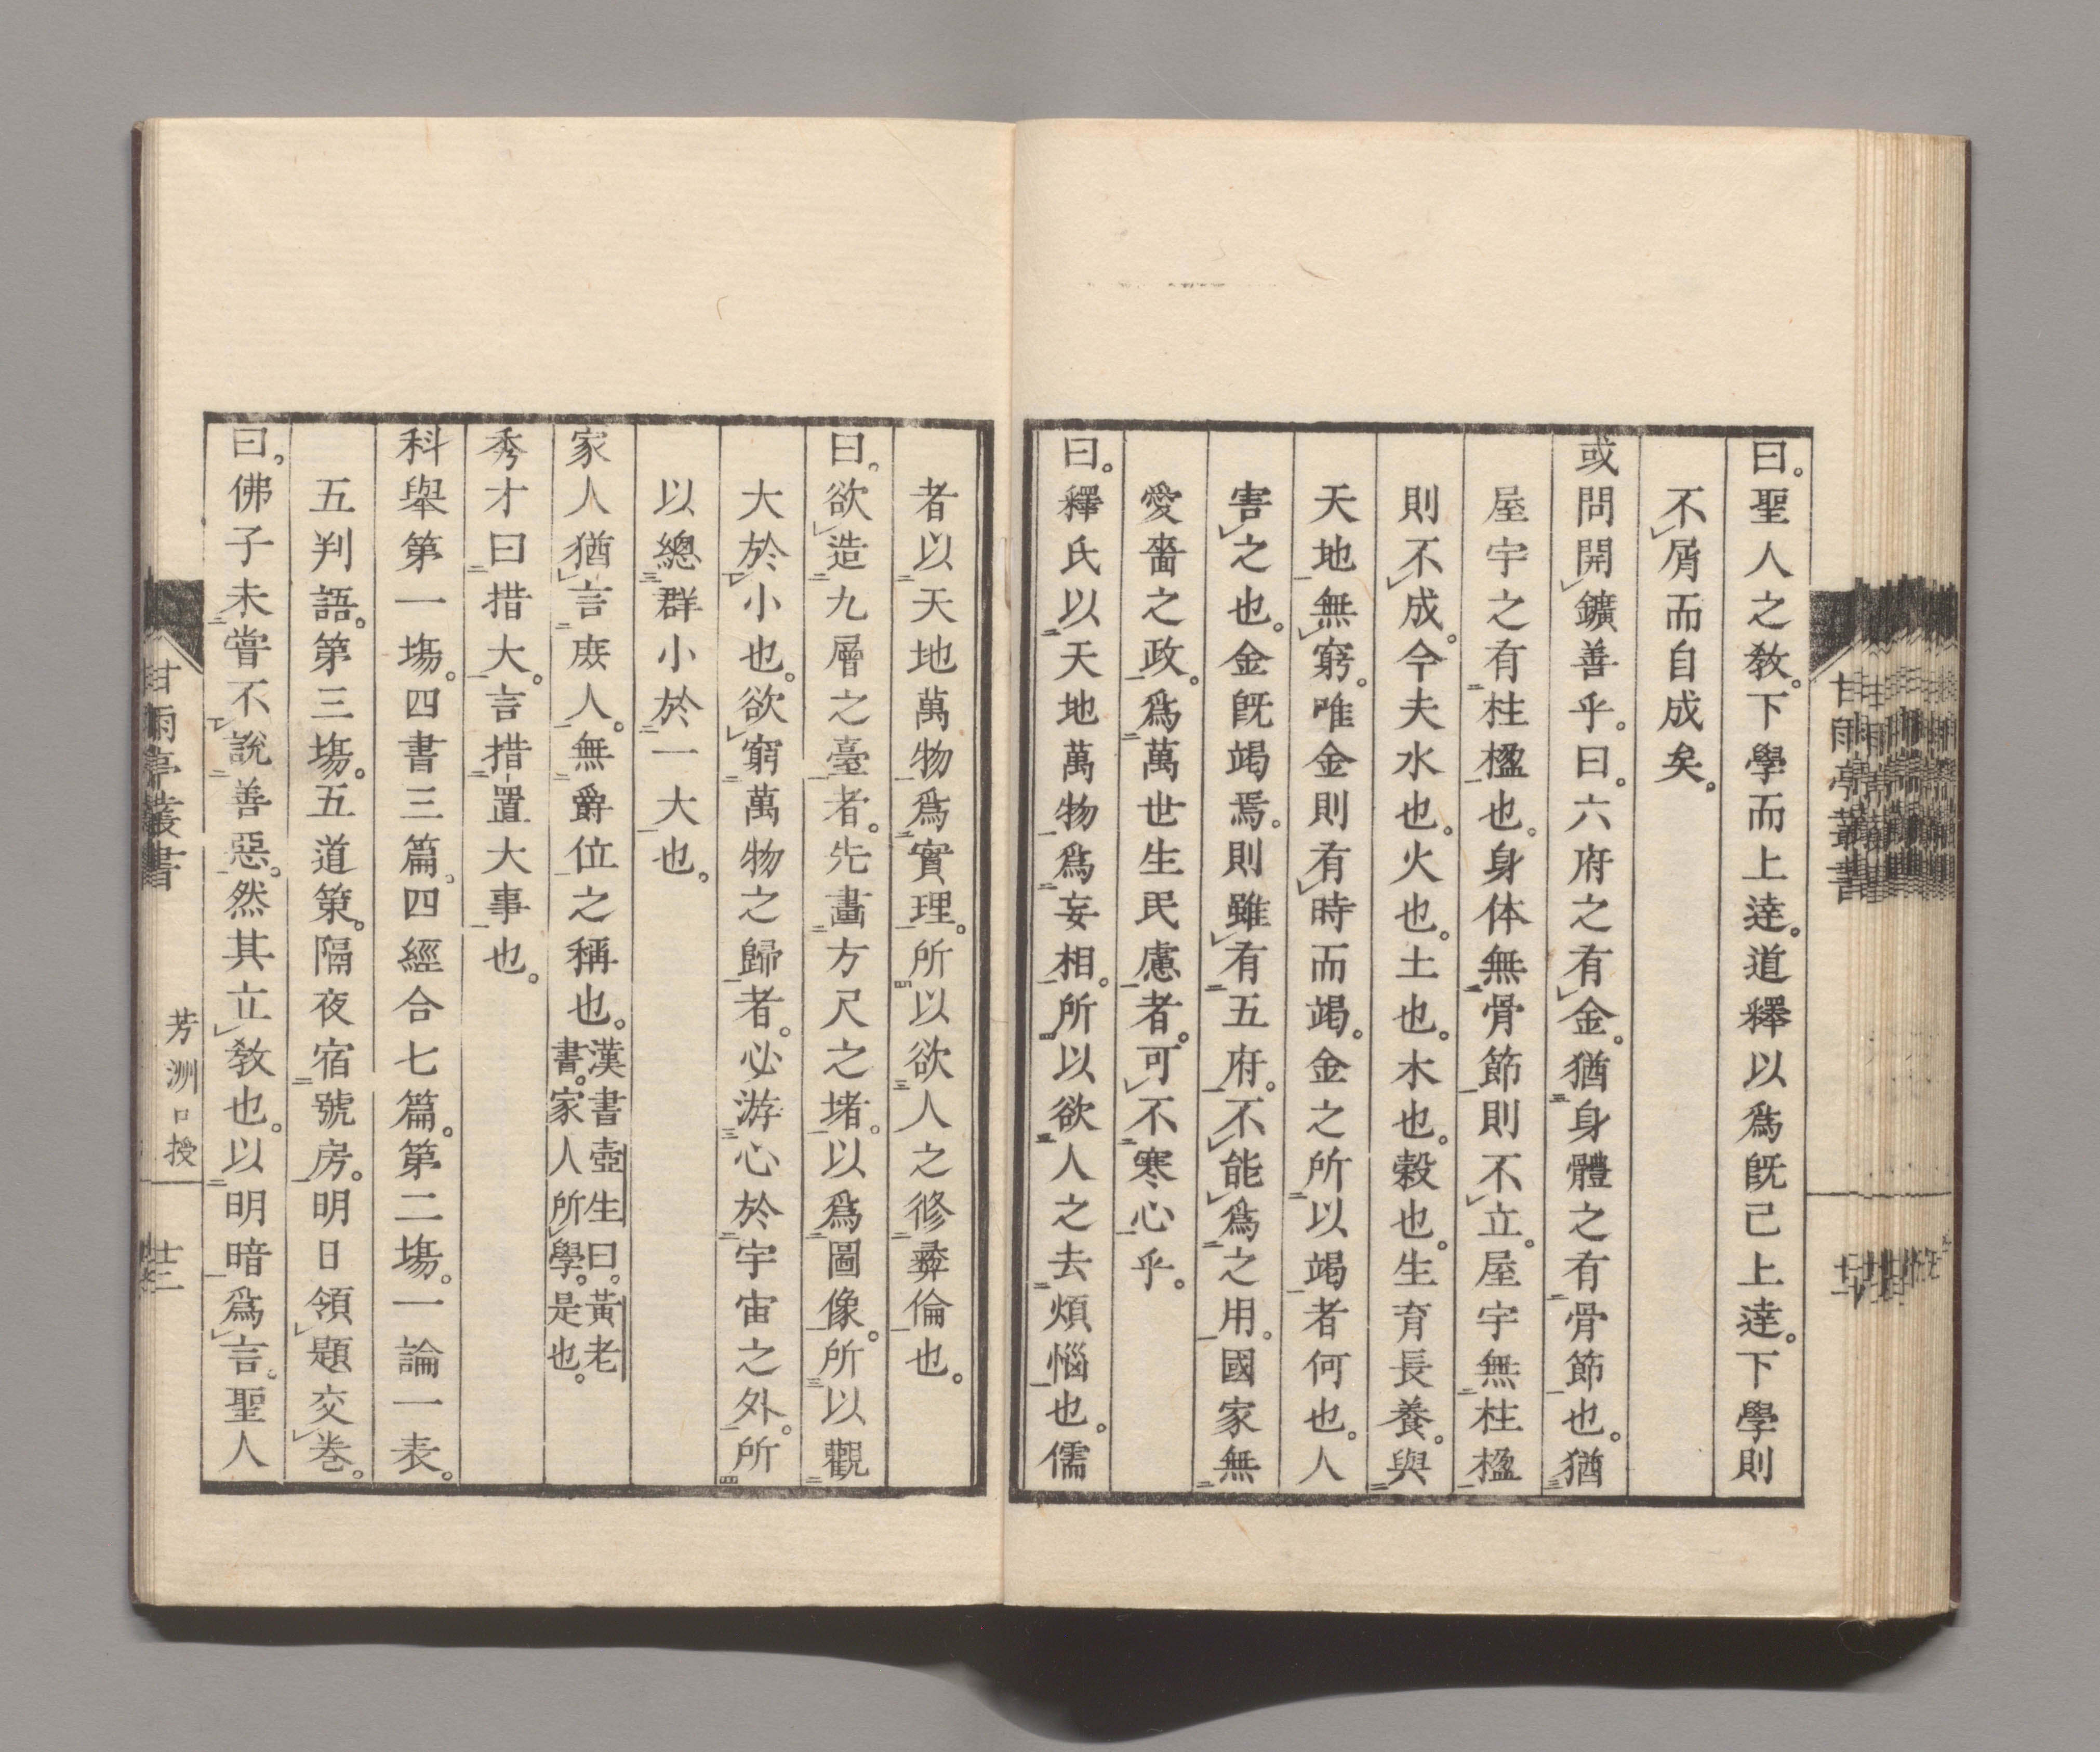 曰。聖人之敎。下學而上達。道釋以爲旣已上達。下學則
不屑而自成矣。
或問開鑛善乎。曰。六府之有金。猶身體之有骨節也。猶
屋宇之有柱楹也。身体無骨節則不立。屋宇無柱楹
則不成。今夫水也。火也。土也。木也。穀也。生育長養。與
天地無窮。唯金則有時而竭。金之所以竭者何也。人
害之也。金旣竭焉。則雖有五府。不能爲之用。國家無
愛嗇之政。爲萬世生民慮者。可不寒心乎。
曰。釋氏以天地萬物爲妄相。所以欲人之去煩惱也。儒
者以天地萬物爲實理。所以欲人之修彜倫也。
曰。欲造九層之臺者。先畫方尺之堵。以爲圖像。所以觀
大於小也。欲窮萬物之歸者。必游心於宇宙之外。所
以總群小於一大也。
家人猶言庶人。無爵位之稱也。漢書壺生曰。黃老
書。家人所學。是也。
秀才曰措大。言措置大事也。
科擧第一場。四書三篇。四經合七篇。第二場。一論一表。
五判語。第三場。五道策。隔夜宿號房。明日領題交卷。
曰。佛子未嘗不說善惡。然其立敎也。以明暗爲言。聖人
甘雨亭叢書
芳洲口授
甘雨亭叢書